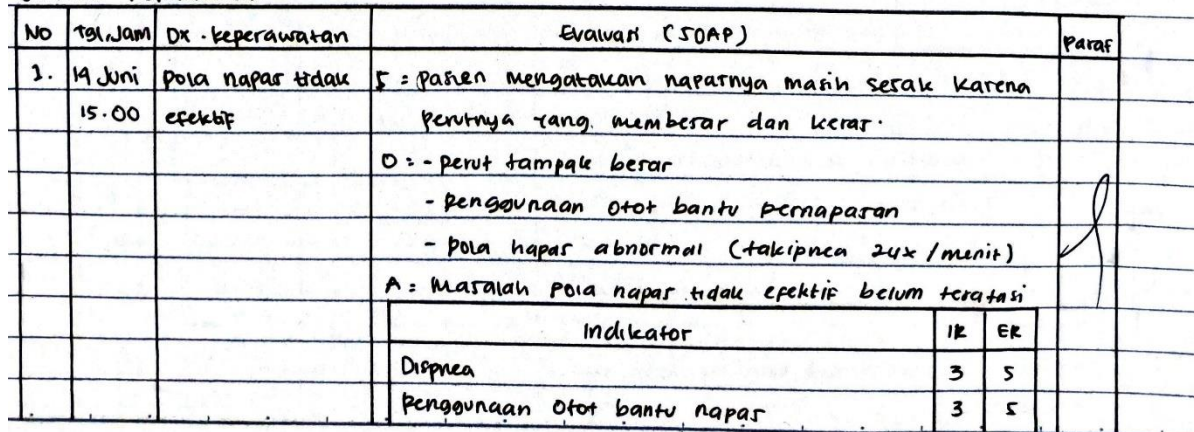 No Tgl,Jam Dx. keperawatan Evaluasi (SOAP) Paraf
1. 19 Juni pola napas tidak S = pasien mengatakan napasnya masih sesak karena
15.00 efektif perutnya yang membesar dan keras.
O = - perut tampak besar
- penggunaan otot bantu pernapasan
- pola napas abnormal (takipnea 24x/menit)
A = Masalah pola napas tidak efektif belum teratasi
Indikator IR ER
Dispnea 3 5
penggunaan otot bantu napas 3 5